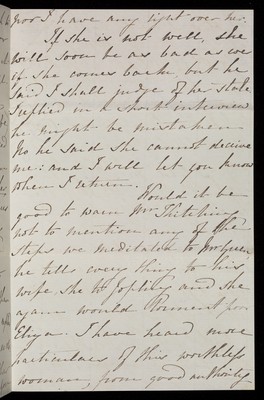 nor I have any right over her.
If she is not well, she
will soon be as bad as ever
if she comes back, but he
said I shall judge of her state
I replied in a short interview
he might be mistaken
No he said she cannot deceive
me: and I will let you know
when I return.
Would it be
good to warn Mr
not to mention any of the
steps we meditated to Mr
he tells every thing to his
wife she to Jopling and she
again would torment poor
Eliza. I have heard more
particulars of this worthless
woman, from good authority